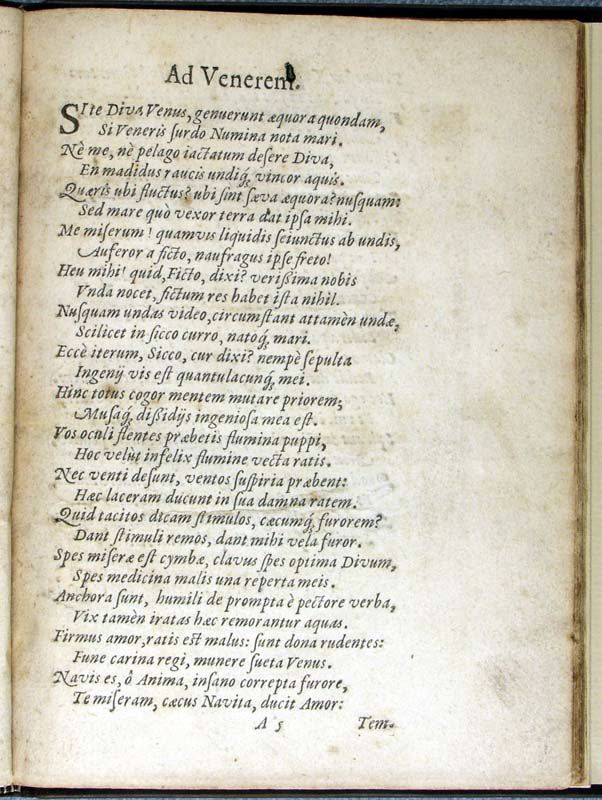 Ad Venerem.
SI te Diva Venus, genuerunt æquora quondam,
Si Veneris ſurdo Numina nota mari.
Nè me, nè pelago iactatum deſere Diva,
En madidus raucis undiq́; vincor aquis.
Quæris ubi fluctus? ubi ſint ſæva æquora? nuſquam:
Sed mare quò vexor terra dat ipſa mihi.
Me miſerum! quamvis liquidis ſeiunctus ab undis,
Auferor a ficto, naufragus ipſe freto!
Heu mihi! quid, Ficto, dixi? verißima nobis
Vnda nocet, fictum res habet iſta nihil.
Nuſquam undas video, circumſtant attamèn undæ,
Scilicet in ſicco curro, natoq́; mari.
Eccè iterum, Sicco, cur dixi? nempè ſepulta
Ingenij vis eſt quantulacunq́; mei.
Hinc totus cogor mentem mutare priorem;
Muſaq́; dißidijs ingenioſa mea eſt.
Vos oculi flentes præbetis flumina puppi,
Hoc velut infelix flumine vecta ratis.
Nec venti deſunt, ventos ſuſpiria præbent:
Hæc laceram ducunt in ſua damna ratem.
Quid tacitos dicam ſtimulos, cæcumq́; furorem?
Dant ſtimuli remos, dant mihi vela furor.
Spes miſeræ eſt cymbæ, clavus ſpes optima Divum,
Spes medicina malis una reperta meis.
Anchora ſunt, humili de prompta è pectore verba,
Vix tamèn iratas hæc remorantur aquas.
Firmus amor, ratis eſt malus: ſunt dona rudentes:
Fune carina regi, munere ſueta Venus.
Navis es, ô Anima, inſano correpta furore,
Te miſeram, cæcus Navita, ducit Amor:
A 5 Tem-